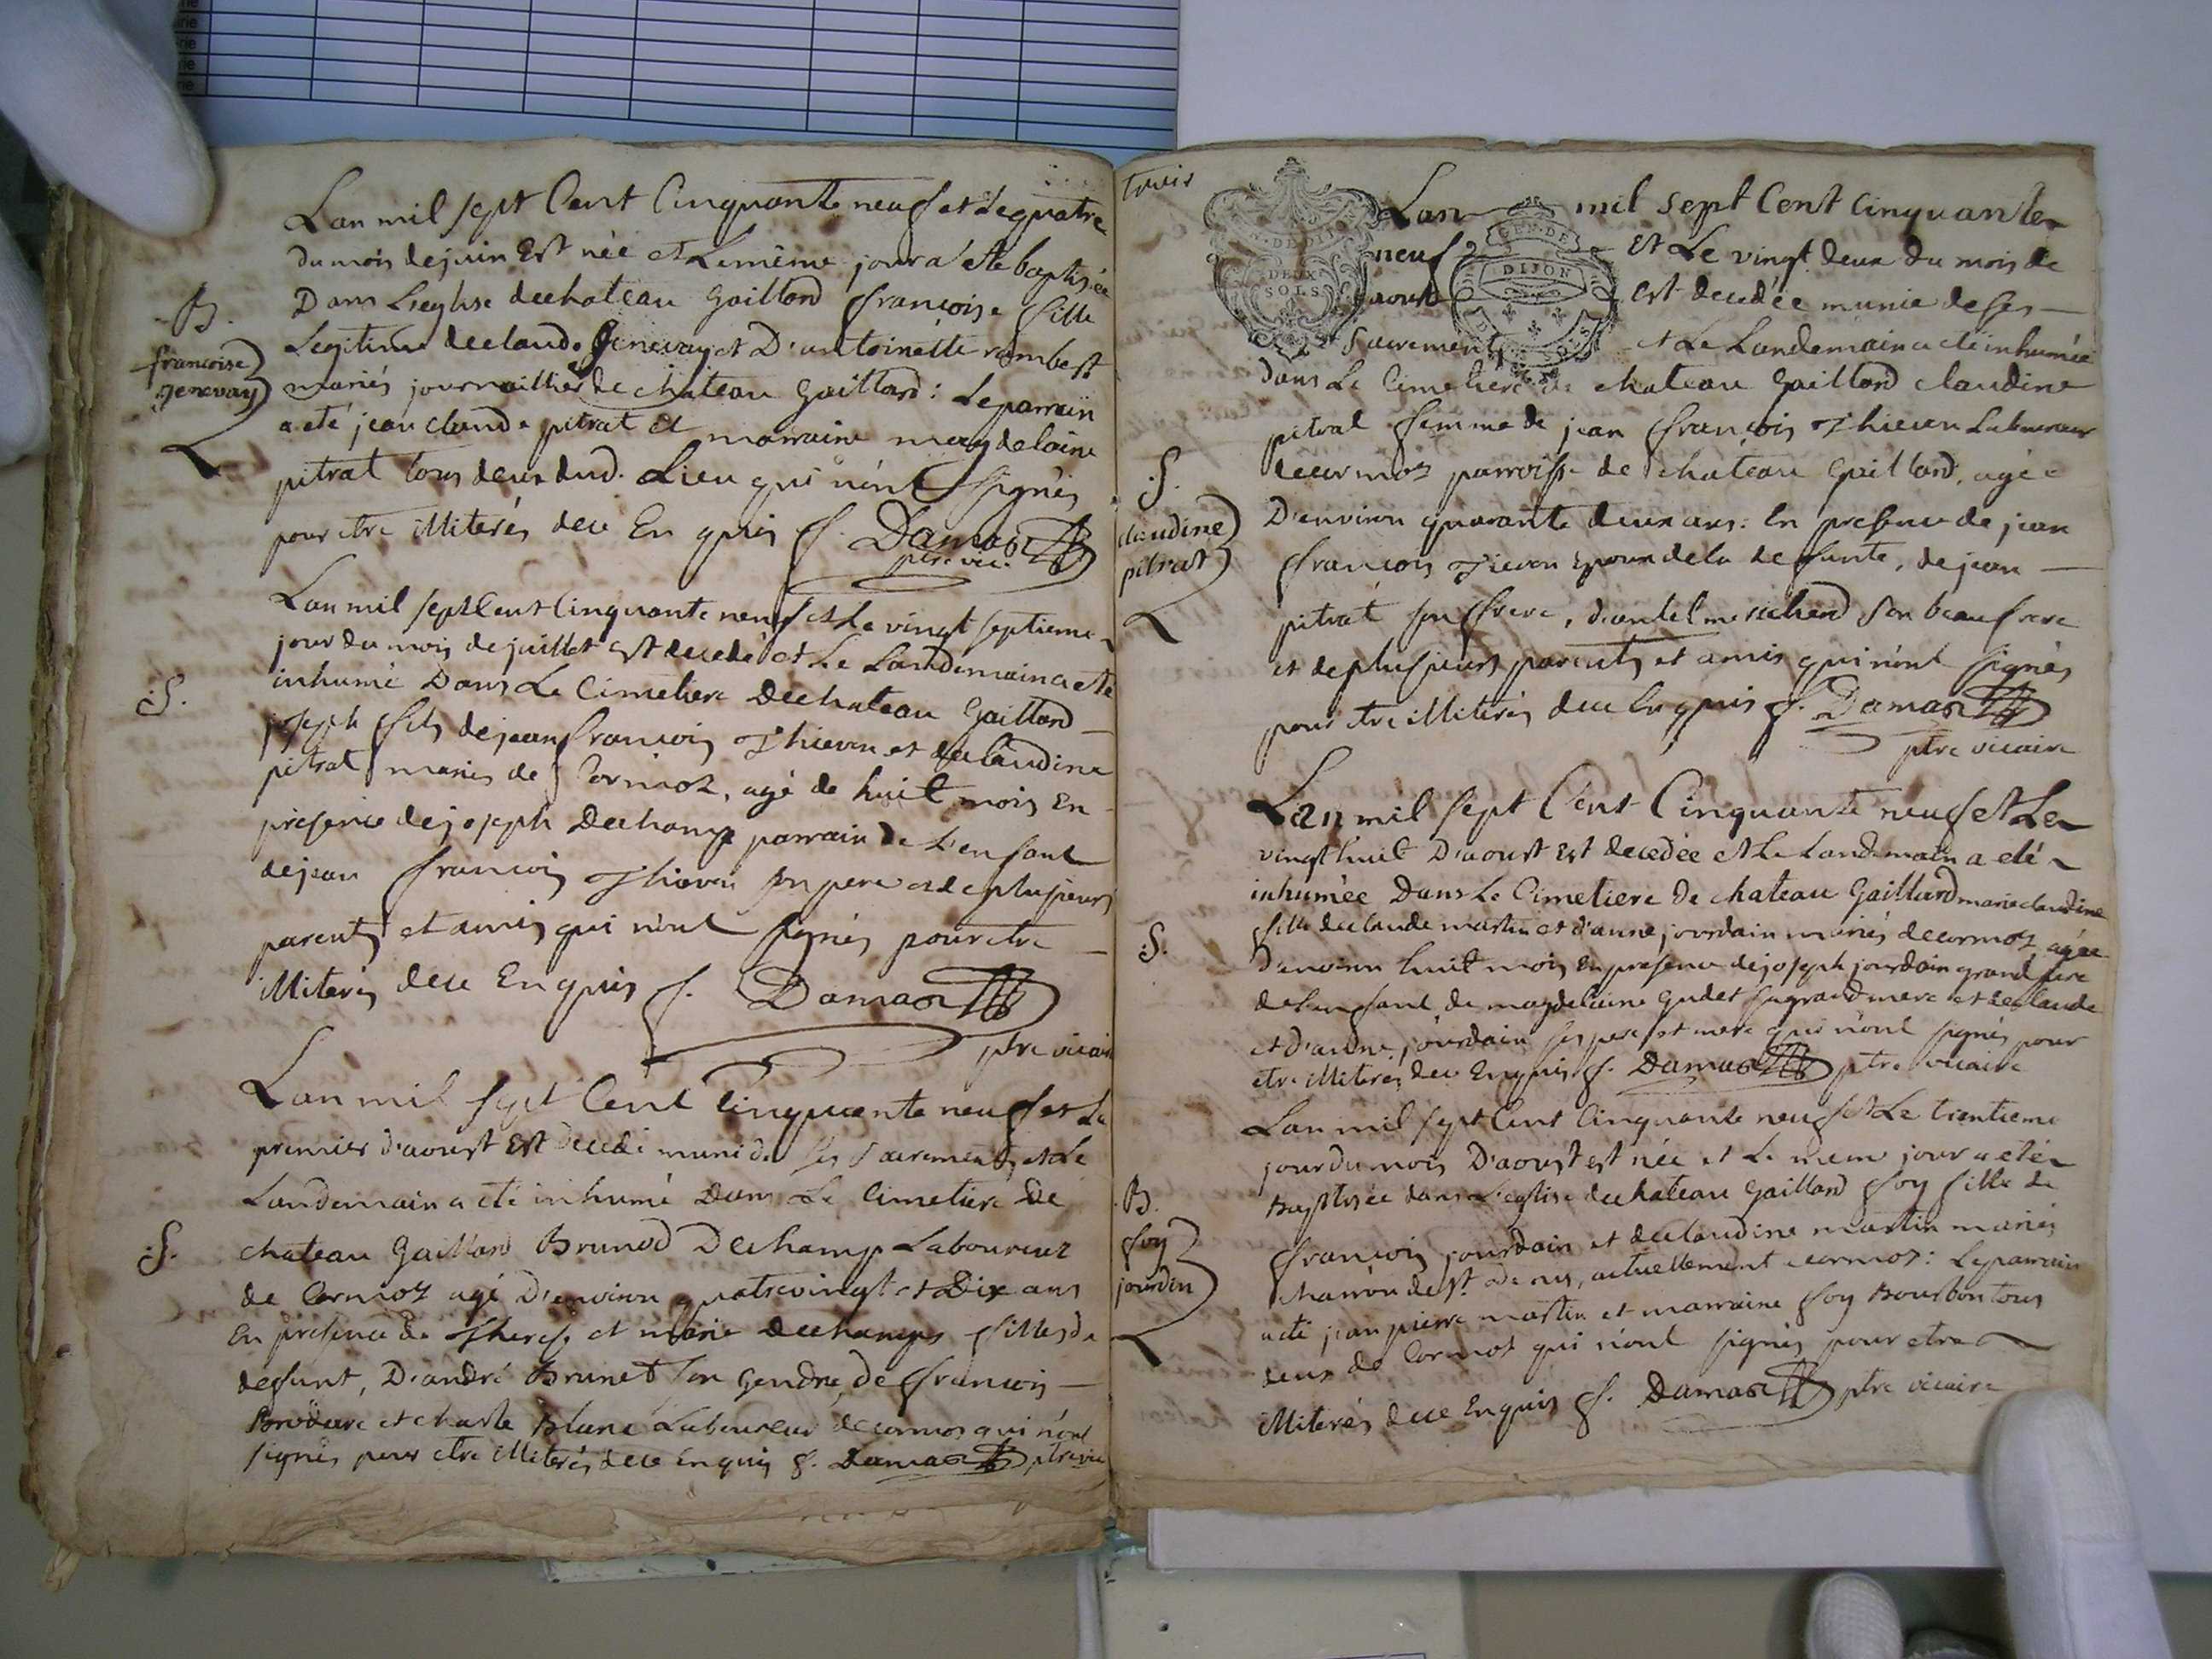 Lan mil sept Cent Cinquante neuf et le quatre
du mois de juin Est née et le même jour a été baptisée
Dans L'eglise de chateau Gaillard françoise fille
Legitime de claude Genevay et D'antoinette rambert
mariés journaillier de chateau Gaillard : Le parrain
a eté jean claude pitrat et marraine magdelaine
pitrat tous deux dud. Lieu qui n'ont signés
pour etre illiterés de ce Enquis f. Damas
ptre vic.
B.
francoise
genevay
Lan mil sept Cent Cinquante neuf et Le vingt septieme
jour du mois de juillet est decedé et Le Landemain a eté
inhumé Dans Le Cimetiere de chateau Gaillard
joseph fils de jean francois Thieven et de claudine
pitrat mariés de Cormoz, agé de huit mois En
presence de joseph Dechamp parrain de L'enfant
de jean francois Thieven son pere et de plusieurs
parents et amis qui n'ont signés pour etre
illiterés de ce Enquis f. Damas
ptre vicair
S.
Lan mil sept Cent Cinquante neuf et Le
premier d'aoust Est decedé muni de ses Sacrements et Le
Landemain a eté inhumé Dans Le Cimetiere De
chateau Gaillard Brunod Dechamp Laboureur
de Cormoz agé D'environ quatrevingt et Dix ans
En presence de Therese et marie dechamps filles du
defunt, D'andré Brunet son Gendre, de francois
et charle Blanc Laboureur de cormoz qui n'ont
signés pour etre illiterés de ce Enquis f. Damas ptre vic
S.
trois
Lan mil sept Cent Cinquante
neuf et Le vingt deux du mois de
aoust est decedée munie de ses
Sacrements et Le Landemain a eté inhumée
dans Le Cimetiere de chateau Gaillard claudine
pitrat femme de jean françois Thieven Laboureur
de cormoz parroisse de chateau Gaillard, agée
D'environ quarante deux ans : En presence de jean
francois Thieven Epoux de la defunte, de jean
pitrat son frere, d'antelme richerd son beau frere
et de plusieurs parents et amis qui n'ont signés
pour etre illiterés de ce Enquis f. Damas
ptre vicaire
DEUX
SOLS
GEN. DE
DIJON
S.
claudine
pitrat
Lan mil sept Cent Cinquante neuf et Le
vingt huit D'aoust est decedée et Le Landemain a eté
inhumée Dans Le Cimetiere de chateau Gaillard marie claudine
fille de claude martin et d'anne jourdain mariés de cormoz, agée
D'environ huit mois En presence de joseph jourdain grand pere
de L'enfant de magdelaine Gudet sa grand mere et de claude
et d'anne jourdain ses pere et mere qui n'ont signés pour
etre illiterés de ce Enquis f. Damas ptre vicaire
S.
Lan mil sept Cent Cinquante neuf et Le trentieme
jour du mois D'aoust est née et Le meme jour a eté
Baptisée dans L'eglise de chateau Gaillard foy fille de
françois jourdain et de claudine martin mariés
charron de St. Denis, actuellement a cormoz : Le parrain
a eté jean pierre martin et marraine foy Bourbon tous
deux de Cormoz qui n'ont signés pour etre
illiterés de ce Enquis f. Damas ptre vicaire
B.
foy
jourdin